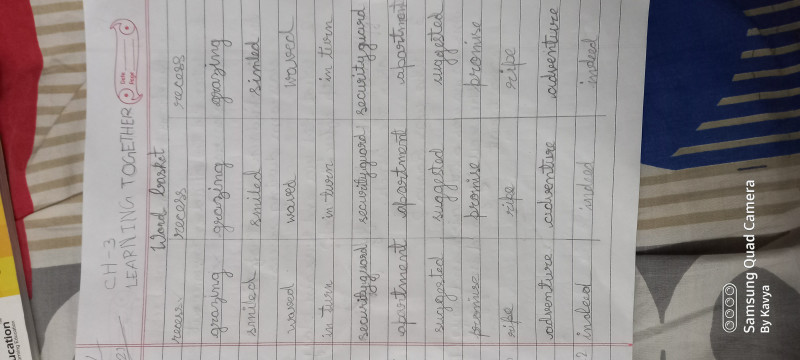 CH-3
LEARNING TOGETHER
Date
Page
Word basket
recess recess recess
grazing grazing grazing
smiled smiled simled
waved waved waved
in turn in turn in turn
security guard security guard security guard
apartment apartment apartment
suggested suggested suggested
promise promise promise
ripe ripe ripe
adventure adventure adventure
indeed indeed indeed
ucation
Samsung Quad Camera
By Kavya